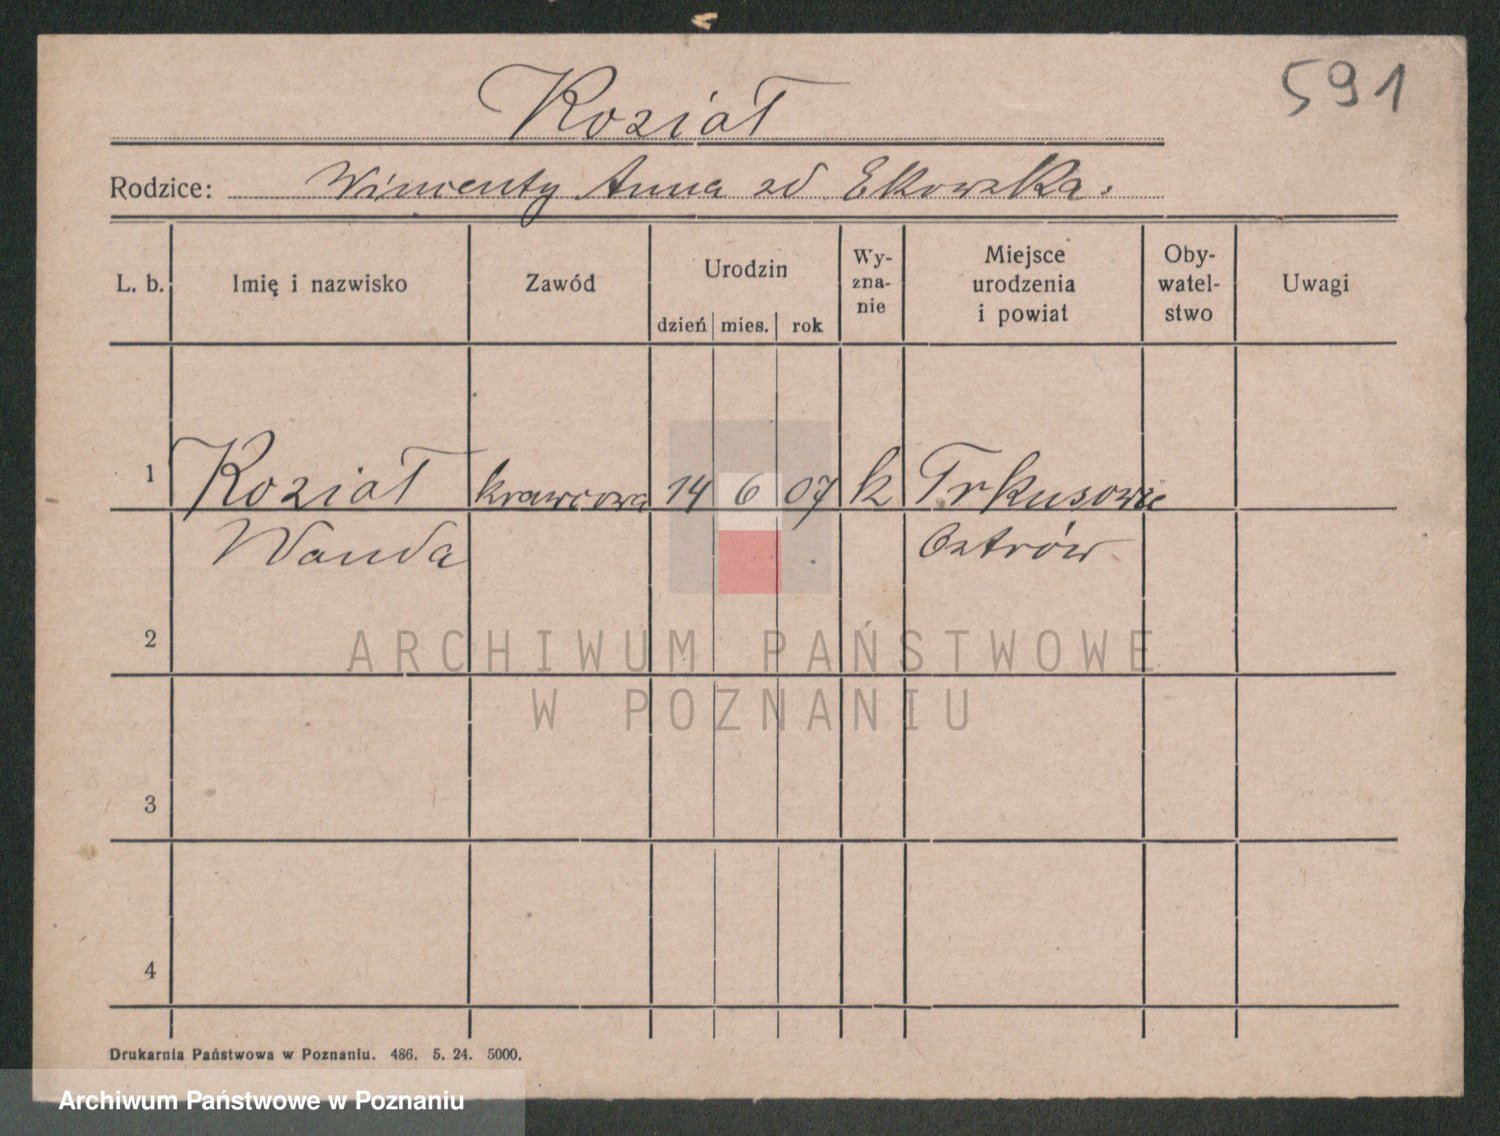 591
Koział
Rodzice: Wincenty Anna zd Ekowska.
L. b. Imię i nazwisko Zawód Urodzin dzień mies. rok Wy-zna-nie Miejsce urodzenia i powiat Oby-watel-stwo Uwagi
1 Koział krawcowa 14 6 07 k Trkusowie
Wanda Ostrów
2
3
4
ARCHIWUM PAŃSTWOWE
W POZNANIU
Drukarnia Państwowa w Poznaniu. 486. 5. 24. 5000.
Archiwum Państwowe w Poznaniu